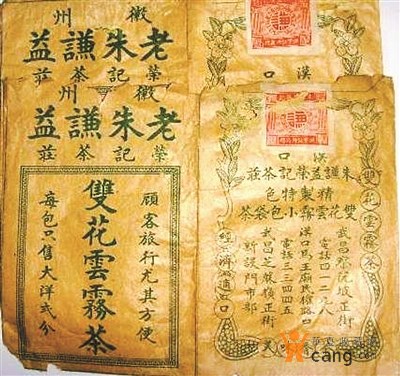 徽州
老朱謙益
榮記茶莊
漢口
謙
徽州
老朱謙益
榮記茶莊
顧客旅行尤其方便
雙花雲霧茶
每包只售大洋弍分
謙
漢口
朱謙益榮記茶莊
精製特色
雙花雲霧小包袋茶
武昌察院坡正街
漢口馬王廟民權路口
電話三三四四五
武昌芝麻嶺正街
新設門市部
雙花雲霧茶
cang.com